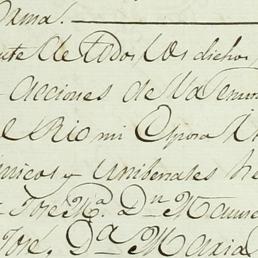 Dama.
de todos los dichos
acciones de la
el Rio mi Esposa
unicos y unibersales he
Jose M.ª Dn Manue
José, Dª Maria